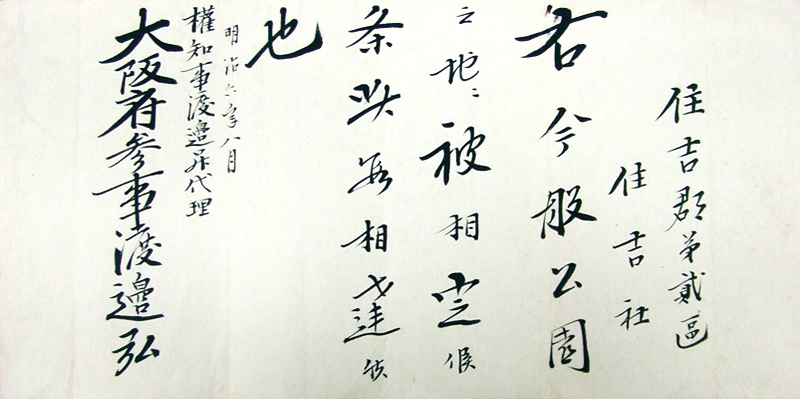 住吉郡第貳區
住吉社
右今般公園
之地ニ被相定候
条此段相達候
也
明治六年八月
權知事渡邉昇代理
大阪府参事渡邉弘